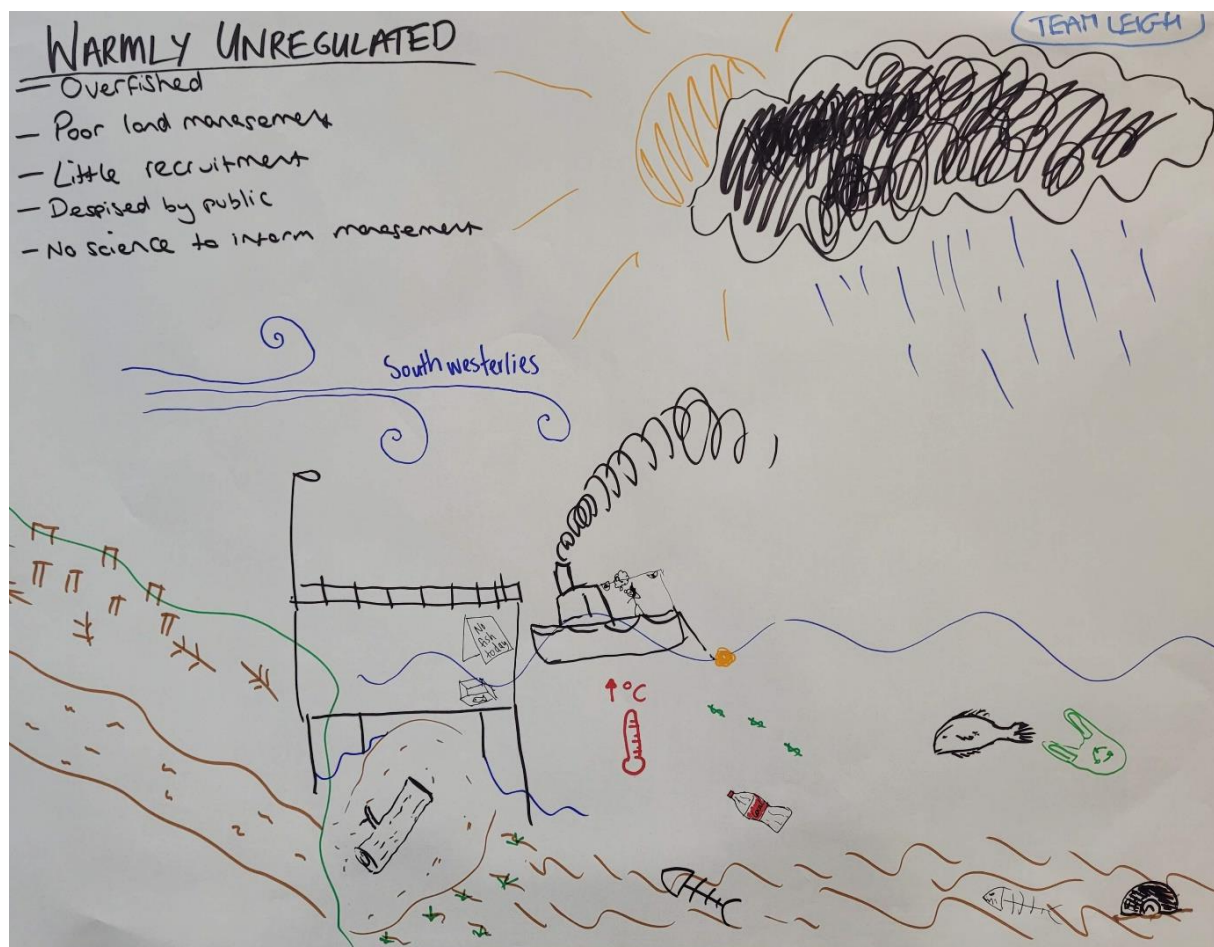 WARMLY UNREGULATED
TEAM LEIGH
- Overfished
- Poor land management
- Little recruitment
- Despised by public
- No science to inform management
Southwesterlies
No
fish
today
↑°C